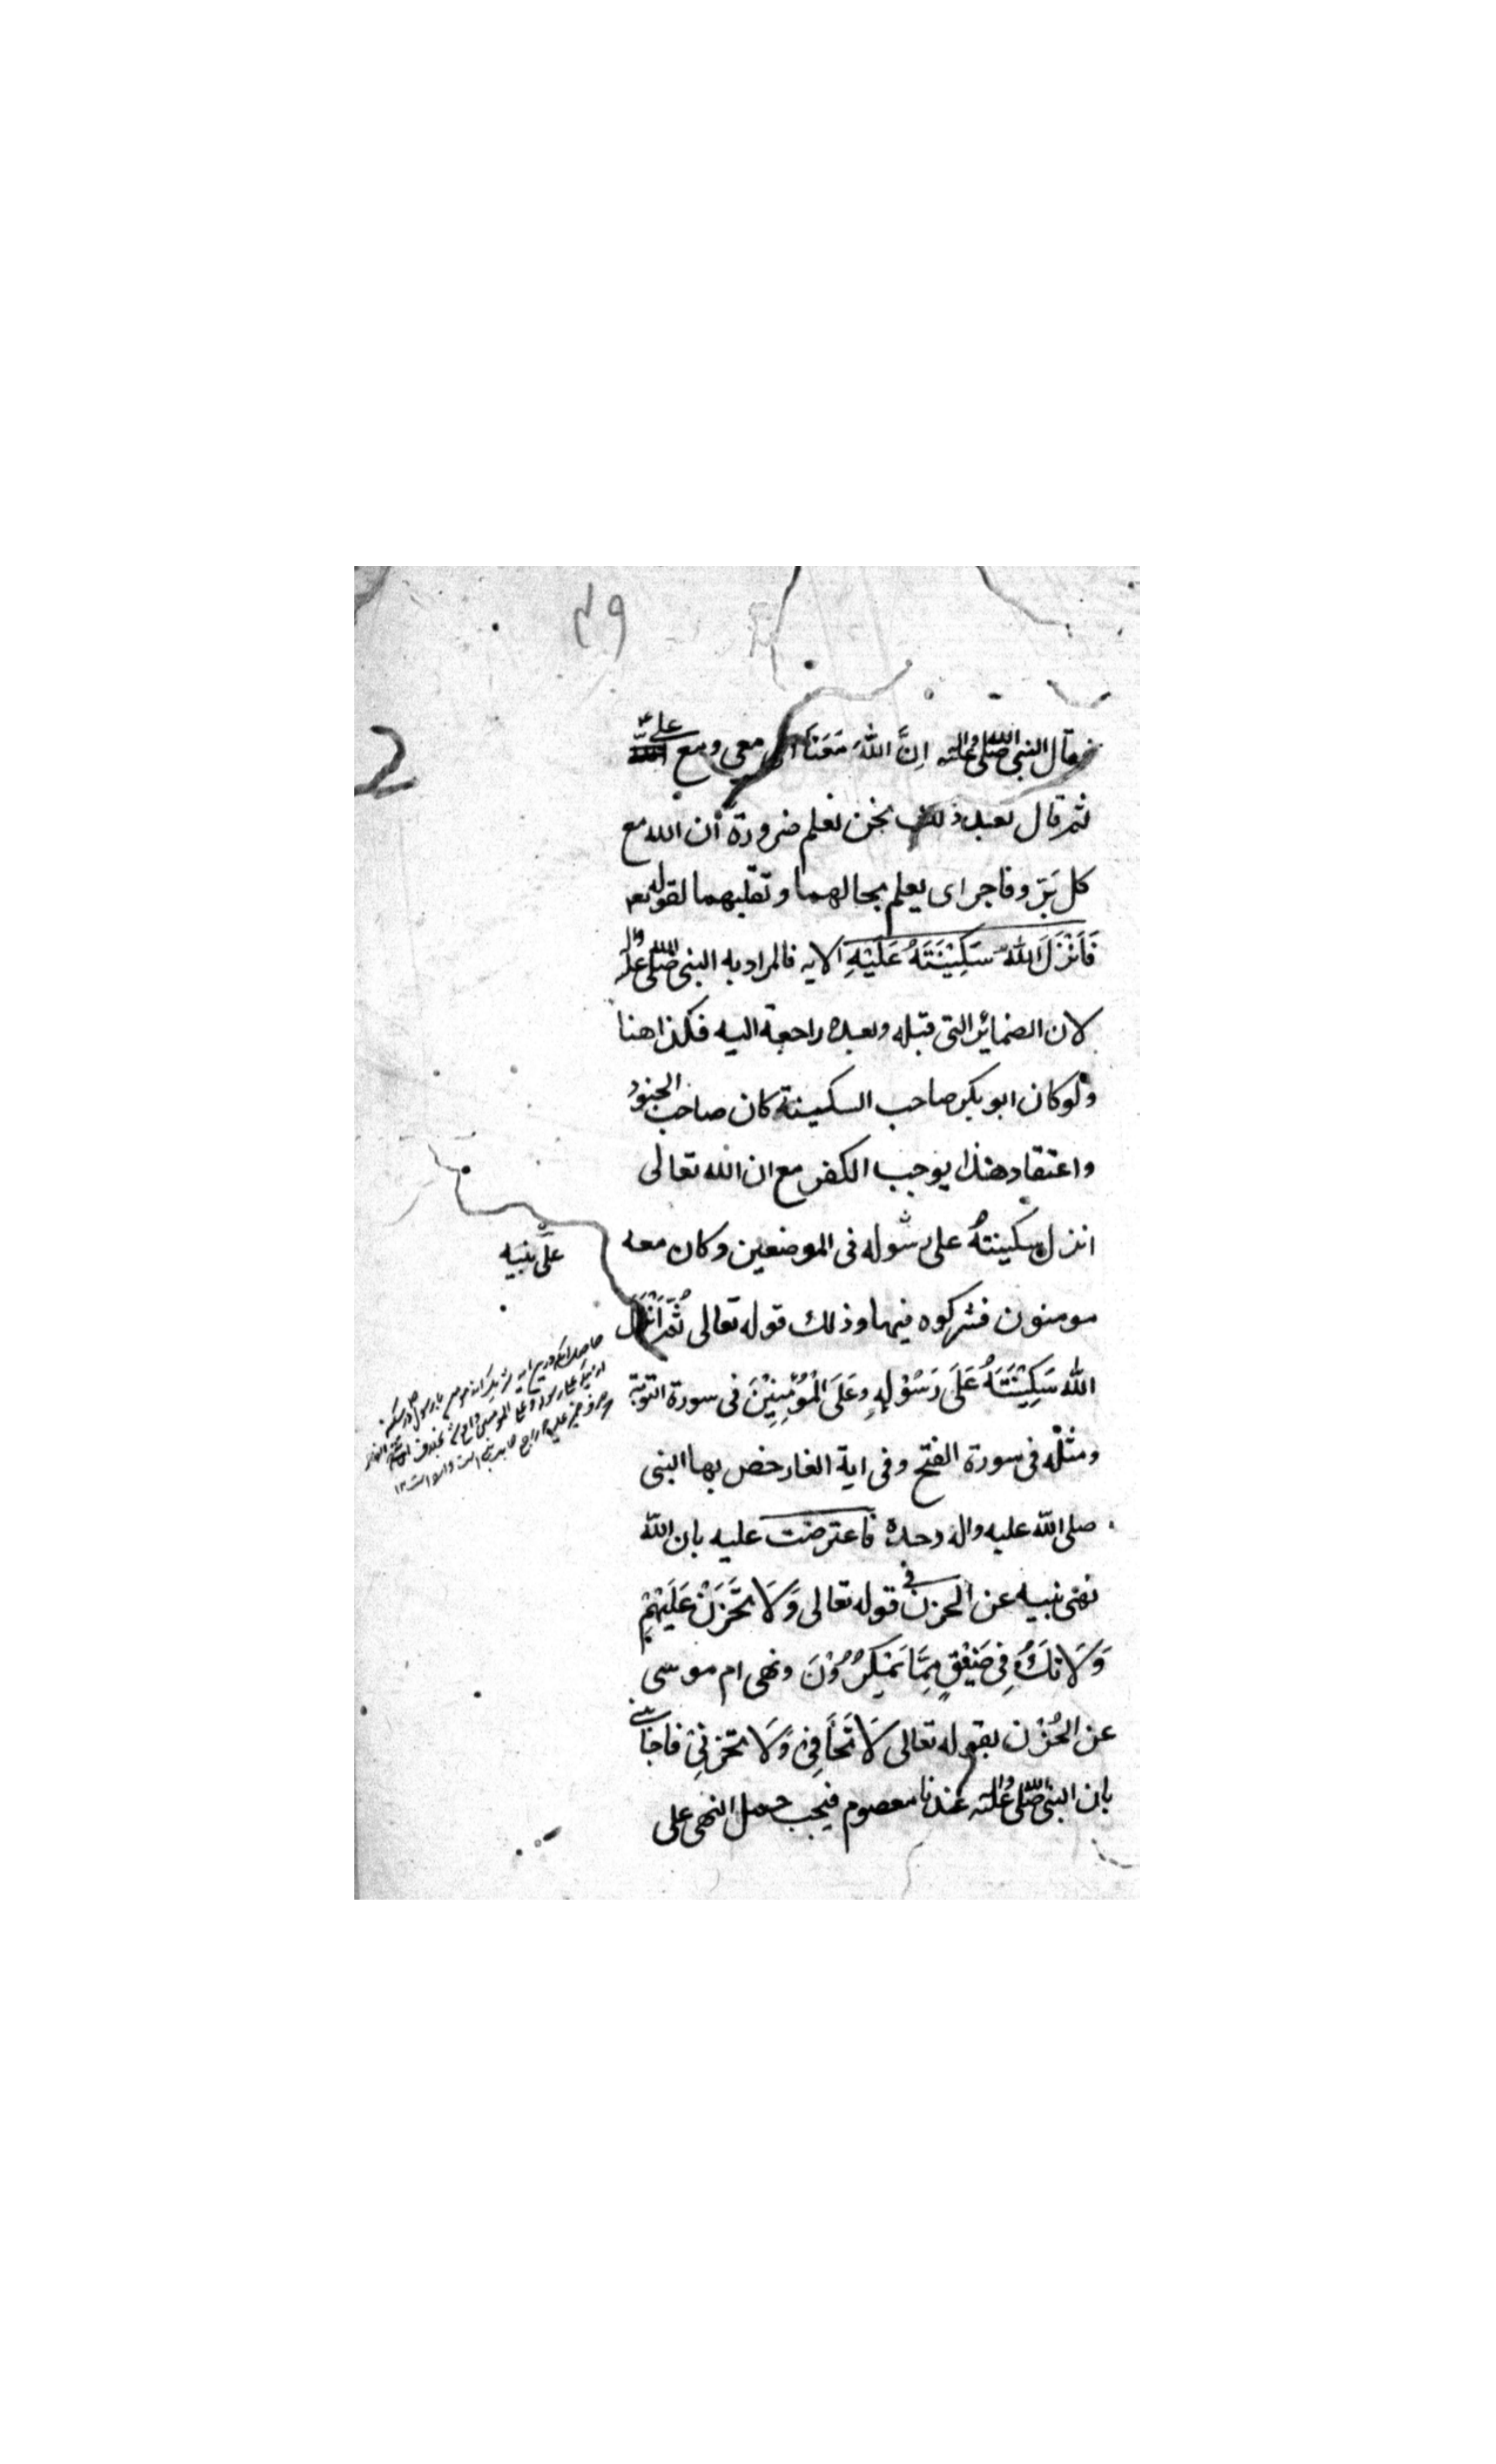 ٤٩
فقال النبي صلى الله عليه واله اِنَّ اللّٰهَ مَعَنَا اى معى ومع على
ثم قال بعد ذلك نحن نعلم ضرورة أن الله مع
كل بَرّ وفاجر اى يعلم بحالهما وتقلبهما لقوله تع
فَاَنْزَلَ اللّٰهُ سَكِيْنَتَهُ عَلَيْهِ الايه فالمراد به النبى صلى الله عليه واله
لان الضمائر التى قبله وبعده راجعة اليه فكذا هنا
ولو كان ابو بكر صاحب السكينة كان صاحب الجنود
واعتقاد هذا يوجب الكفر مع ان الله تعالى
انزل سكينتهُ على رسوله فى الموضعين وكان معه
على نبيه
مومنون فشركوه فيها وذلك قوله تعالى ثُمَّ اَنْزَلَ
اللّٰه سَكِيْنَتَهُ عَلَى رَسُوْلِهِ وعَلَى الْمُؤْمِنِيْنَ فى سورة التوبة
ومثله فى سورة الفتح وفى اية الغار خص بها النبى
صلى اللّٰه عليه واله وحده فاعترضت عليه بان اللّٰه
نهى نبيه عن الحزن فى قوله تعالى وَلَا تَحْزَنْ عَلَيْهِمْ
وَلَا تَكُ فِى ضَيْقٍ مِمَّا يَمْكُرُوْنَ ونهى ام موسى
عن الحُزْن بقوله تعالى لَا تَخَافِىْ وَلَا تَحْزَنِىْ فاجابنى
بان النبى صلى الله عليه واله عندنا معصوم فيجب حمل النهى على